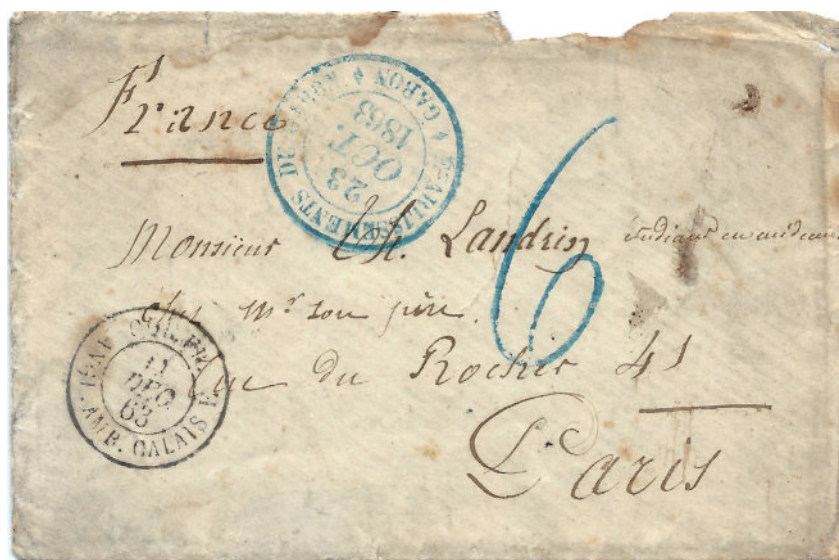 France
ETABLISSEMENTS DU GABON
23
OCT.
1863
Monsieur Th. Landrin étudiant en médecine
chez Mr son père
rue du Rocher 41
Paris
6
11
DEC.
63
AMB. CALAIS